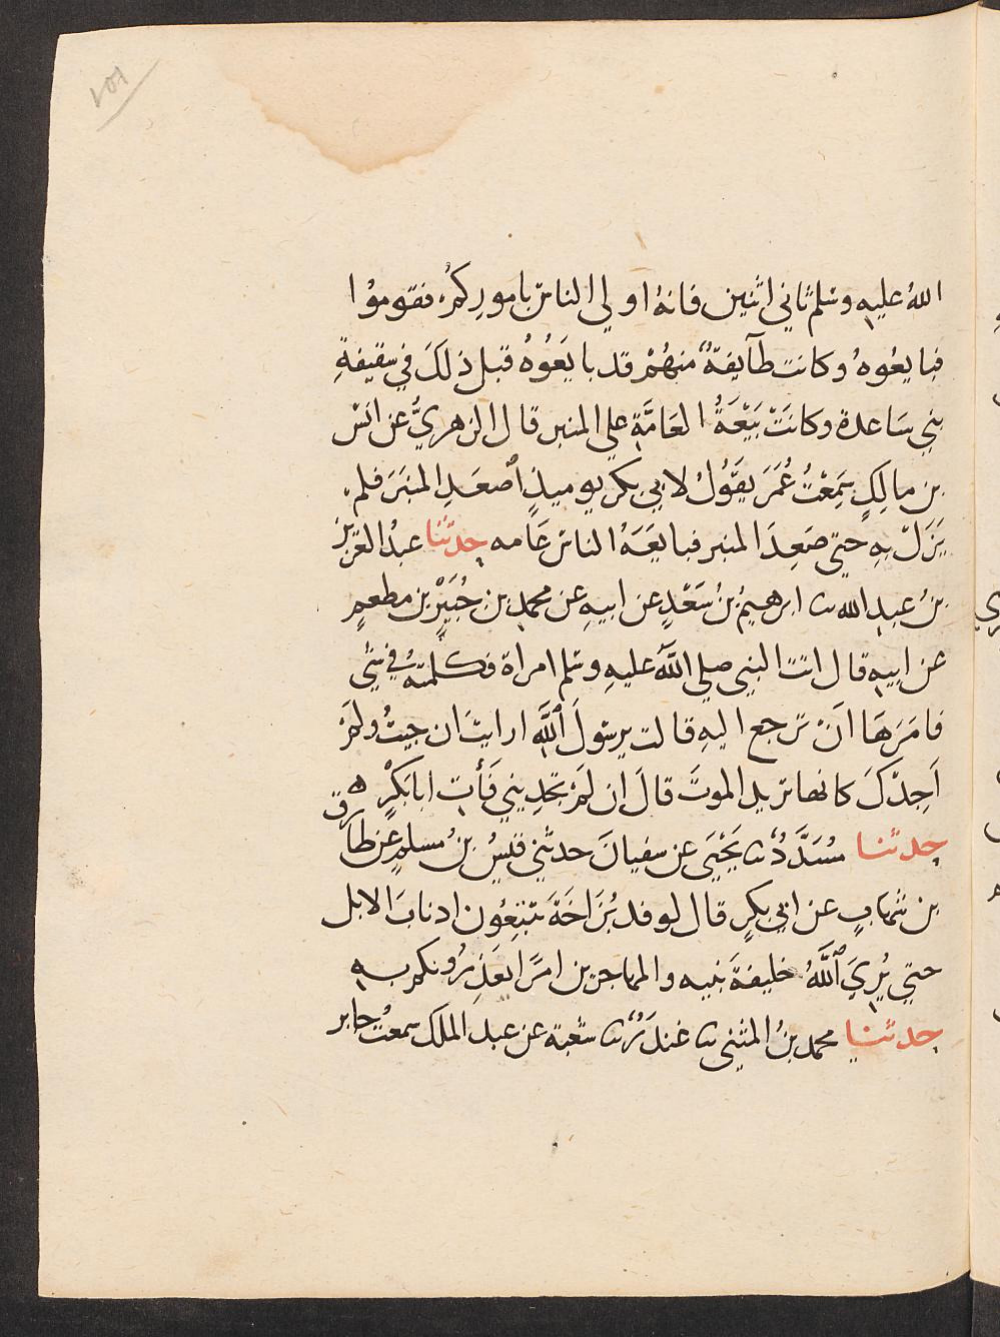 ١٥٦
الله عليه وسلم ثاني اثنين فانه اولي الناس بامورِكُم، فقوموُا
فبايعُوهُ وكانت طآيفةٌ منهُمْ قد بايَعُوُهُ قبل ذلكَ في سقيفةِ
بني سَاعدة وكانَتْ بَيْعَةُ العَامَّةِ علي المنبر قال الزهريُّ عن انَس
بن مالِكٍ سَمِعْتُ عُمَرَ يقَوُلُ لابي بكر يوميذٍ اْصعَدِ المنبَرَ فلم
يَزَلْ بِهِ حتي صَعِدَ المنبر فبايَعَهُ الناس عَامه حدثنا عبدُ العَزِيز
بنُ عبدِ الله ثنا ابرهيمُ بنُ سَعْدٍ عن ابيهِ عن محمد بن جُبَيْرِ بن مطعمٍ
عن ابيهِ قال اتت النبي صلي اللَّه عليهِ وسلم امراة فكلمتهُ في شي
فامَرَهَا اَنْ ترجع اليهِ قالت يرسُولَ اللَّهِ ارايتَ ان جيتُ ولَمْ
اَجِدْكَ كانها تريد الموتَ قالَ ان لَمْ تجدِيني فَأتِ ابابَكْرٍ ه
حدثنا مسَدَّدٌ ثنا يَحْيَى عن سفيانَ حدثني قيسُ بنُ مُسلمٍ عن طارق
بن شهابٍ عن ابي بكرٍ قال لوفد بُزَاخَةَ تتبِعُون اذنابَ الابل
حتي يُرِيَ اللَّهُ خليفةَ نبيه والمهاجرين امرًا يعَذِرُونكم به
حدثنا محمد بنُ المثنى ثنا غندَرٌ ثنا شعبة عن عبد الملك سمعْتُ جابر